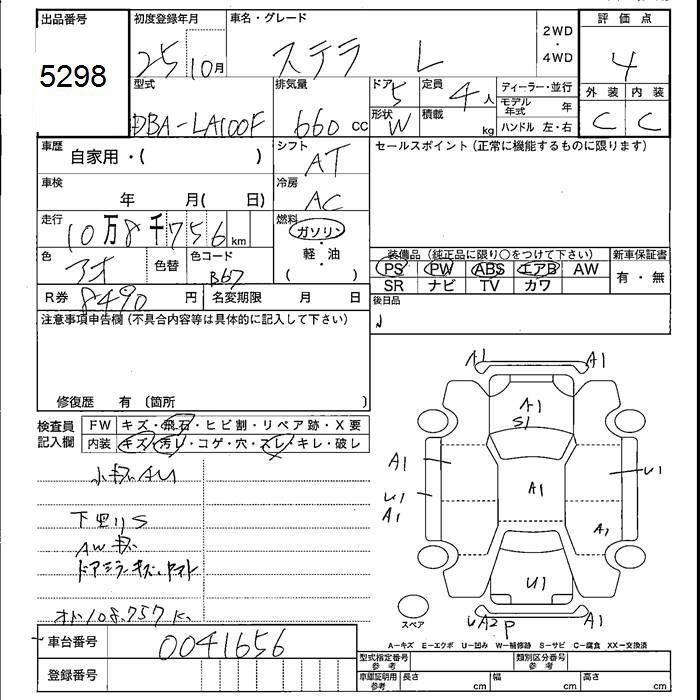 出品番号 初度登録年月 車名・グレード 評価点
5298 25 10月 ステラ L 2WD ・ 4WD 4
型式 排気量 ドア 5 定員 4人 ディーラー・並行 外装 内装
DBA-LA100F 660 cc 形状 W 積載 kg モデル年式 年 C C
ハンドル 左・右
車歴 自家用・( ) シフト AT セールスポイント(正常に機能するものに限ります)
車検 年 月( 日) 冷房 AC
走行 10万8千756km 燃料 ガソリン・軽・油 ( )
色 アオ 色替 色コード B67 装備品(純正品に限り○をつけて下さい) 新車保証書
PS PW ABS エアB AW 有・無
SR ナビ TV カワ
R券 8490円 名変期限 月 日 後日品
注意事項申告欄(不具合内容等は具体的に記入して下さい)
修復歴 有 〔箇所 〕
検査員記入欄 FW キズ・飛石・ヒビ割・リペア跡・X要
内装 キズ・汚レ・コゲ・穴・スレ・キレ・破レ
小キズAU
下廻りS
AWキズ
ドアミラーキズ・ヤケ
オド108.757K
A1 A1
A1
S1
A1 U1
U1 A1
A1 A1
U1
UA2P A1
スペア
A=キズ E=エクボ U=凹み W=補修跡 S=サビ C=腐食 XX=交換済
車台番号 0041656
登録番号
型式指定番号 参考 類別区分番号 参考
車庫証明用 参考 長さ cm 幅 cm 高さ cm